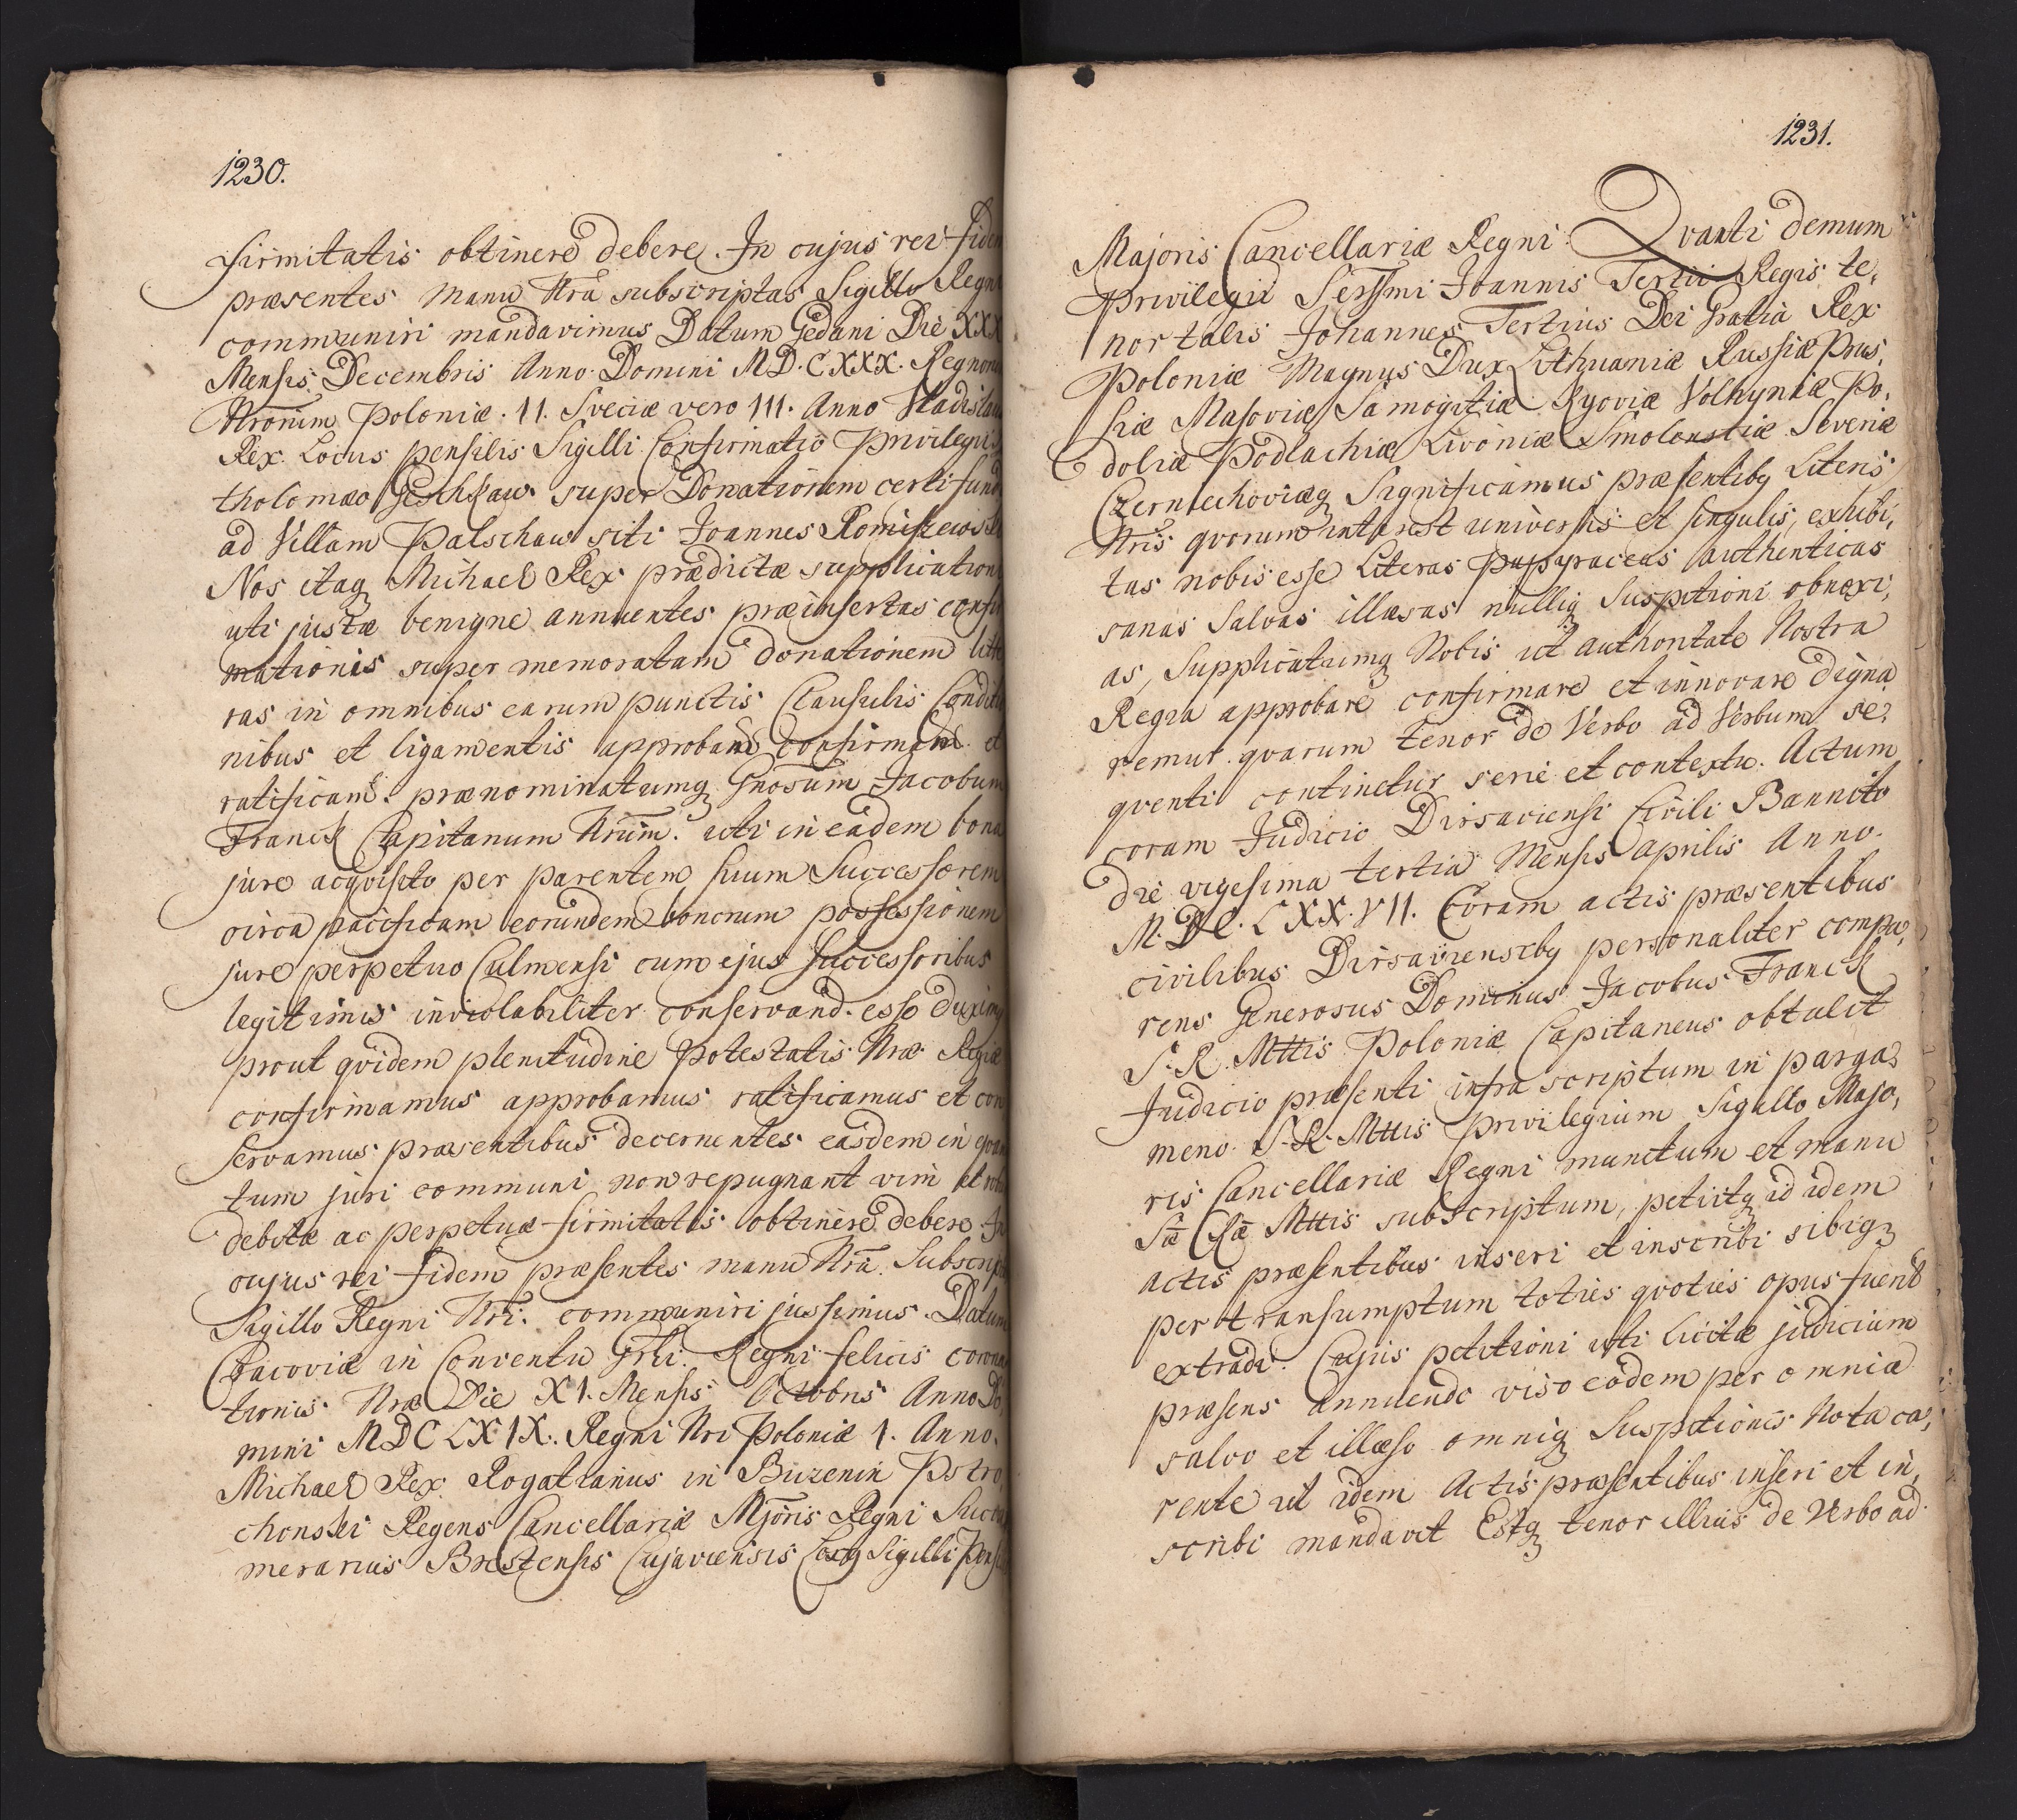 1230.
firmitatis obtinere debere. In cujus rei fidem
præsentes manu Nrã subscriptas Sigillo Regni
communiri mandavimus Datum Gedani Die XXX
Mensis Decembris Anno Domini M.D.C.XXX. Regnorum
Nrorum Poloniæ. 11. Sveciæ vero 111. Anno Vladislaus
Rex. Locus pensilis Sigilli Confirmatio Privilegii
tholomæo Geschkaw super Donationem certi fundi
ad Villam Palschaw siti Joannes Romiszewski
Nos itaq Michael Rex prædictæ supplicationi
uti justæ benigne annuentes præinsertas confir
mationis super memoratam donationem litte
ras in omnibus earum punctis Clausulis Conditio
nibus et ligamentis approband. confirmand. et
ratificand. prænominatumq Gnosum Jacobum
Franck Capitanum Nrum. uti in eadem bona
jure acqvisito per parentem suum Successorem
circa pacificam eorundem bonorum possessionem
jure perpetuo Culmensi cum ejus successoribus
legitimis inviolabiliter conservand. esse duximq
prout qvidem plenitudine Potestatis Nræ Regiæ
confirmamus approbamus ratificamus et con
servamus præsentibus decernentes easdem in qvan
tum juri communi non repugnant vim et robur
debitæ ac perpetuæ firmitatis obtinere debere In
cujus rei fidem præsentes manu Nrã. Subscrip
Sigillo Regni Nri. communiri jussimus. Datum
Cracoviæ in Conventu Grli. Regni felicis corona
tionis Nræ Die XI. Mensis Octobris Anno Do,
mini MDCLXIX. Regni Nri Poloniæ 1. Anno.
Michael Rex. Rogatianus in Buzenin Pstro,
chonski Regens Cancellariæ Mjoris Regni Succa
merarius Brestensis Cujaviensis Locq Sigilli Pensi
1231.
Majoris Cancellariæ Regni. Qvanti demum
Privilegii Serssmi Joannis Tertii Regis te,
nor talis Johannes Tertius Dei Gratia Rex
Poloniæ Magnus Dux Lithuaniæ Russiæ Prus,
siæ Masoviæ Samogitiæ Kyoviæ Volhyniæ Po,
doliæ Podlachiæ Livoniæ Smolenstiæ Severiæ
Czerniechoviæq Significamus præsentibq Literis
Nris qvorum interest universis et singulis, exhibi,
tas nobis esse Literas papyraceas authenticas
sanas salvas illæsas nulliq Suspitioni obnoxi,
as, Supplicatumq Nobis ut authoritate Nostra
Regia approbare confirmare et innovare digna
remur qvarum tenor de Verbo ad Verbum se,
qventi continetur serie et contextu. Actum
coram Judicio Dirsaviensi Civili Bannito
die vigesima tertia Mensis Aprilis Anno.
M.DC.LXX.VII. Coram actis præsentibus
civilibus Dirsaviensibq personaliter compa,
rens Generosus Dominus Jacobus Franck
S. R. Mttis Poloniæ Capitaneus obtulit
Judicio præsenti infra scriptum in parga,
meno S. R. Mttis Privilegium Sigillo Majo,
ris Cancellariæ Regni munitum et manu
Sæ Mttis subscriptum, petiitq id idem
actis præsentibus inseri et inscribi sibiq
per transumptum toties qvoties opus fuerit
extradi. Cujus petitioni uti licitæ judicium
præsens annuendo viso eodem per omnia
salvo et illæso omniq Suspitionis Nota ca,
rente ut idem Actis præsentibus inseri et in,
scribi mandavit Estq tenor illius de Verbo ad